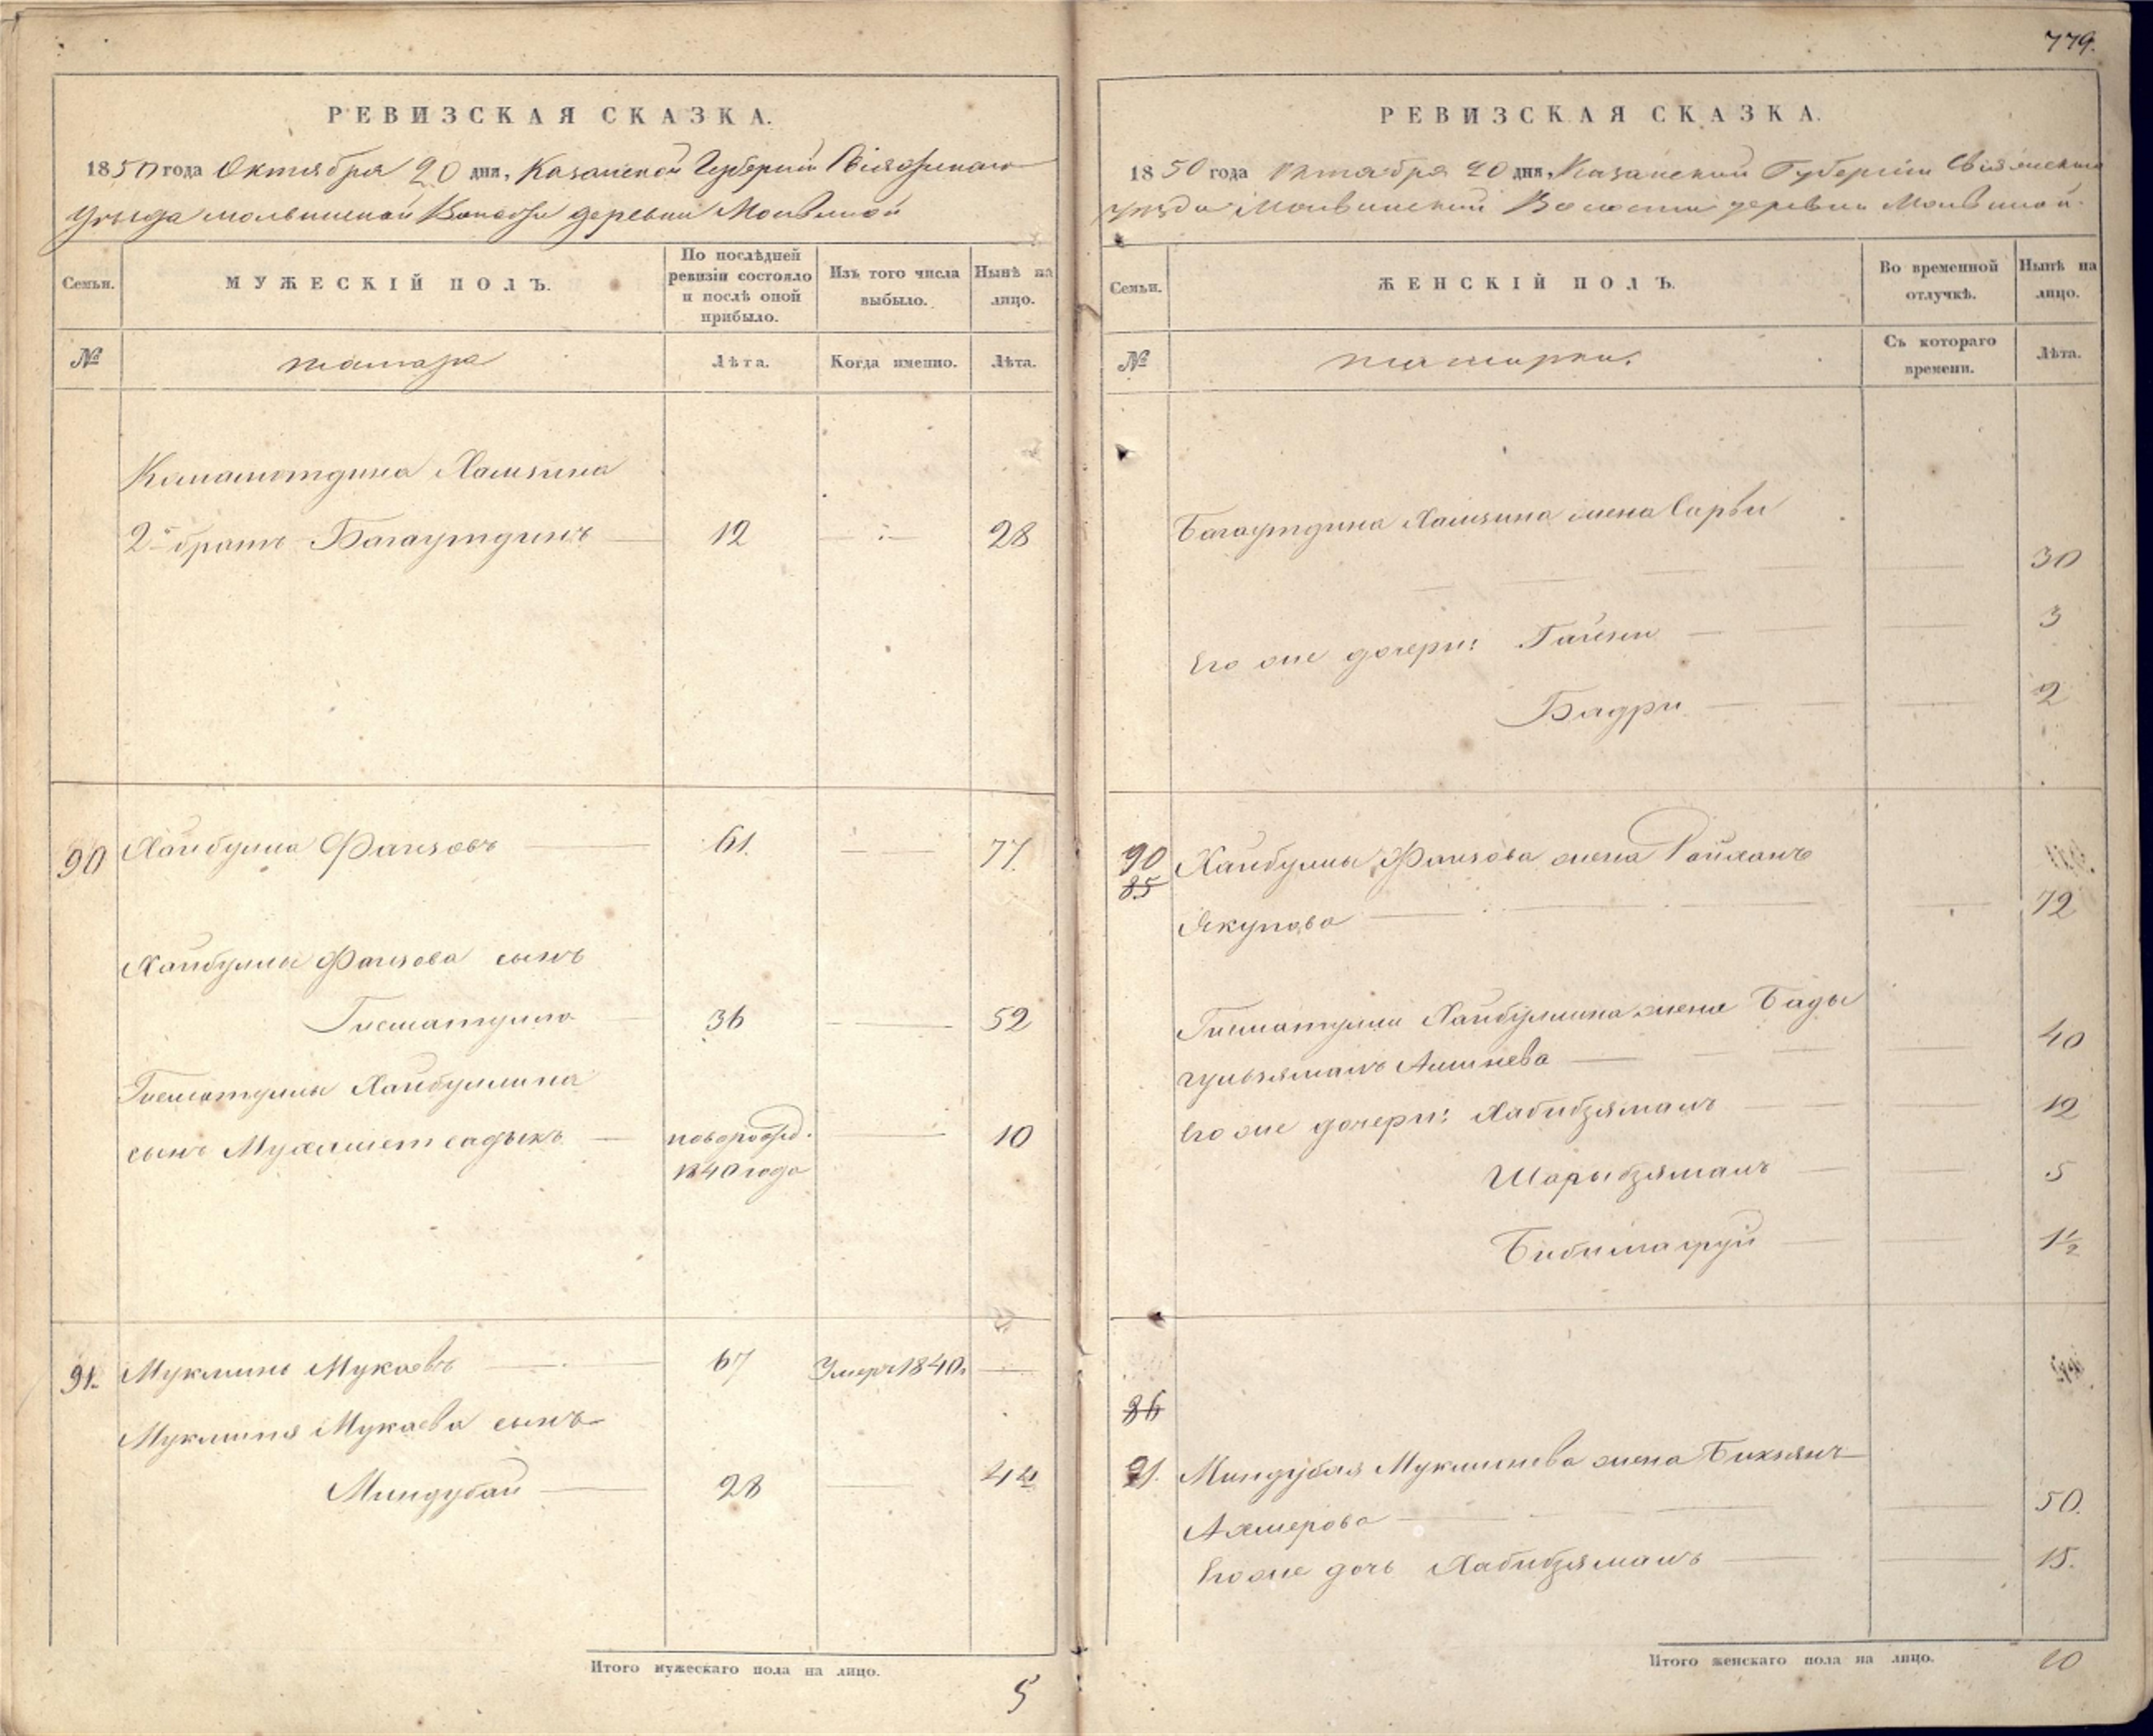 РЕВИЗСКАЯ СКАЗКА.
1850 года Октября 20 дня, Казанской Губернии Свіяжскаго
Уѣзда Молвинской Волости деревни Молвиной
Семьи.
МУЖЕСКІЙ ПОЛЪ.
По послѣдней ревизіи состояло и послѣ оной прибыло.
Изъ того числа выбыло.
Нынѣ на лицо.
№
татара
Лѣта.
Когда именно.
Лѣта.
Камалотдина Хамзина
2й братъ Багаутдинъ 12 28
90 Хайбулла Фаизовъ 61. 77.
Хайбуллы Фаизова сынъ
Гисматулла 36 52
Гисматуллы Хайбуллина
сынъ Мухаметсадыкъ новорожд. 10
1840 года
91. Муклинъ Мукаевъ 67 Умеръ 1840.
Муклиня Мукаева сынъ
Миндубай 28 44
Итого мужескаго пола на лицо.
5
779.
РЕВИЗСКАЯ СКАЗКА.
1850 года Октября 20 дня, Казанской Губерніи Свіяжскаго
уѣзда Молвинской Волости деревни Молвиной.
Семьи.
ЖЕНСКІЙ ПОЛЪ.
Во временной отлучкѣ.
Нынѣ на лицо.
№
татарки.
Съ котораго времени.
Лѣта.
Багаутдина Хамзина жена Сарви
30
Его же дочери: Гайни 3
Бадри 2
90 Хайбуллы Фаизова жена Райханъ
85
Якупова 72
Гисматуллы Хайбуллина жена Бады
гульзямалъ Аминева 40
Его же дочери: Хабибзямалъ 12
Шарыбзямалъ 5
Бибимафруй 1½
86
91. Миндубая Муклинева жена Бикзянъ
Ахмерова 50.
Его же дочь Хабибзямалъ 15.
Итого женскаго пола на лицо. 10